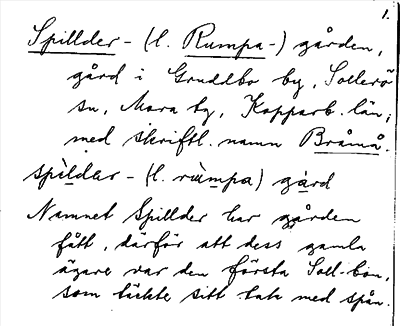 1.
Spillder- (l. Rumpa-) gården,
gård i Gruddbo by, Sollerö
sn, Mora tg, Kopparb. län;
med skriftl. namn Bråmå.
spildar- (l. rùmpa) gard
Namnet Spillder har gården
fått, därför att dess gamla
ägare var den första Soll-bon,
som täckte sitt tak med spån.